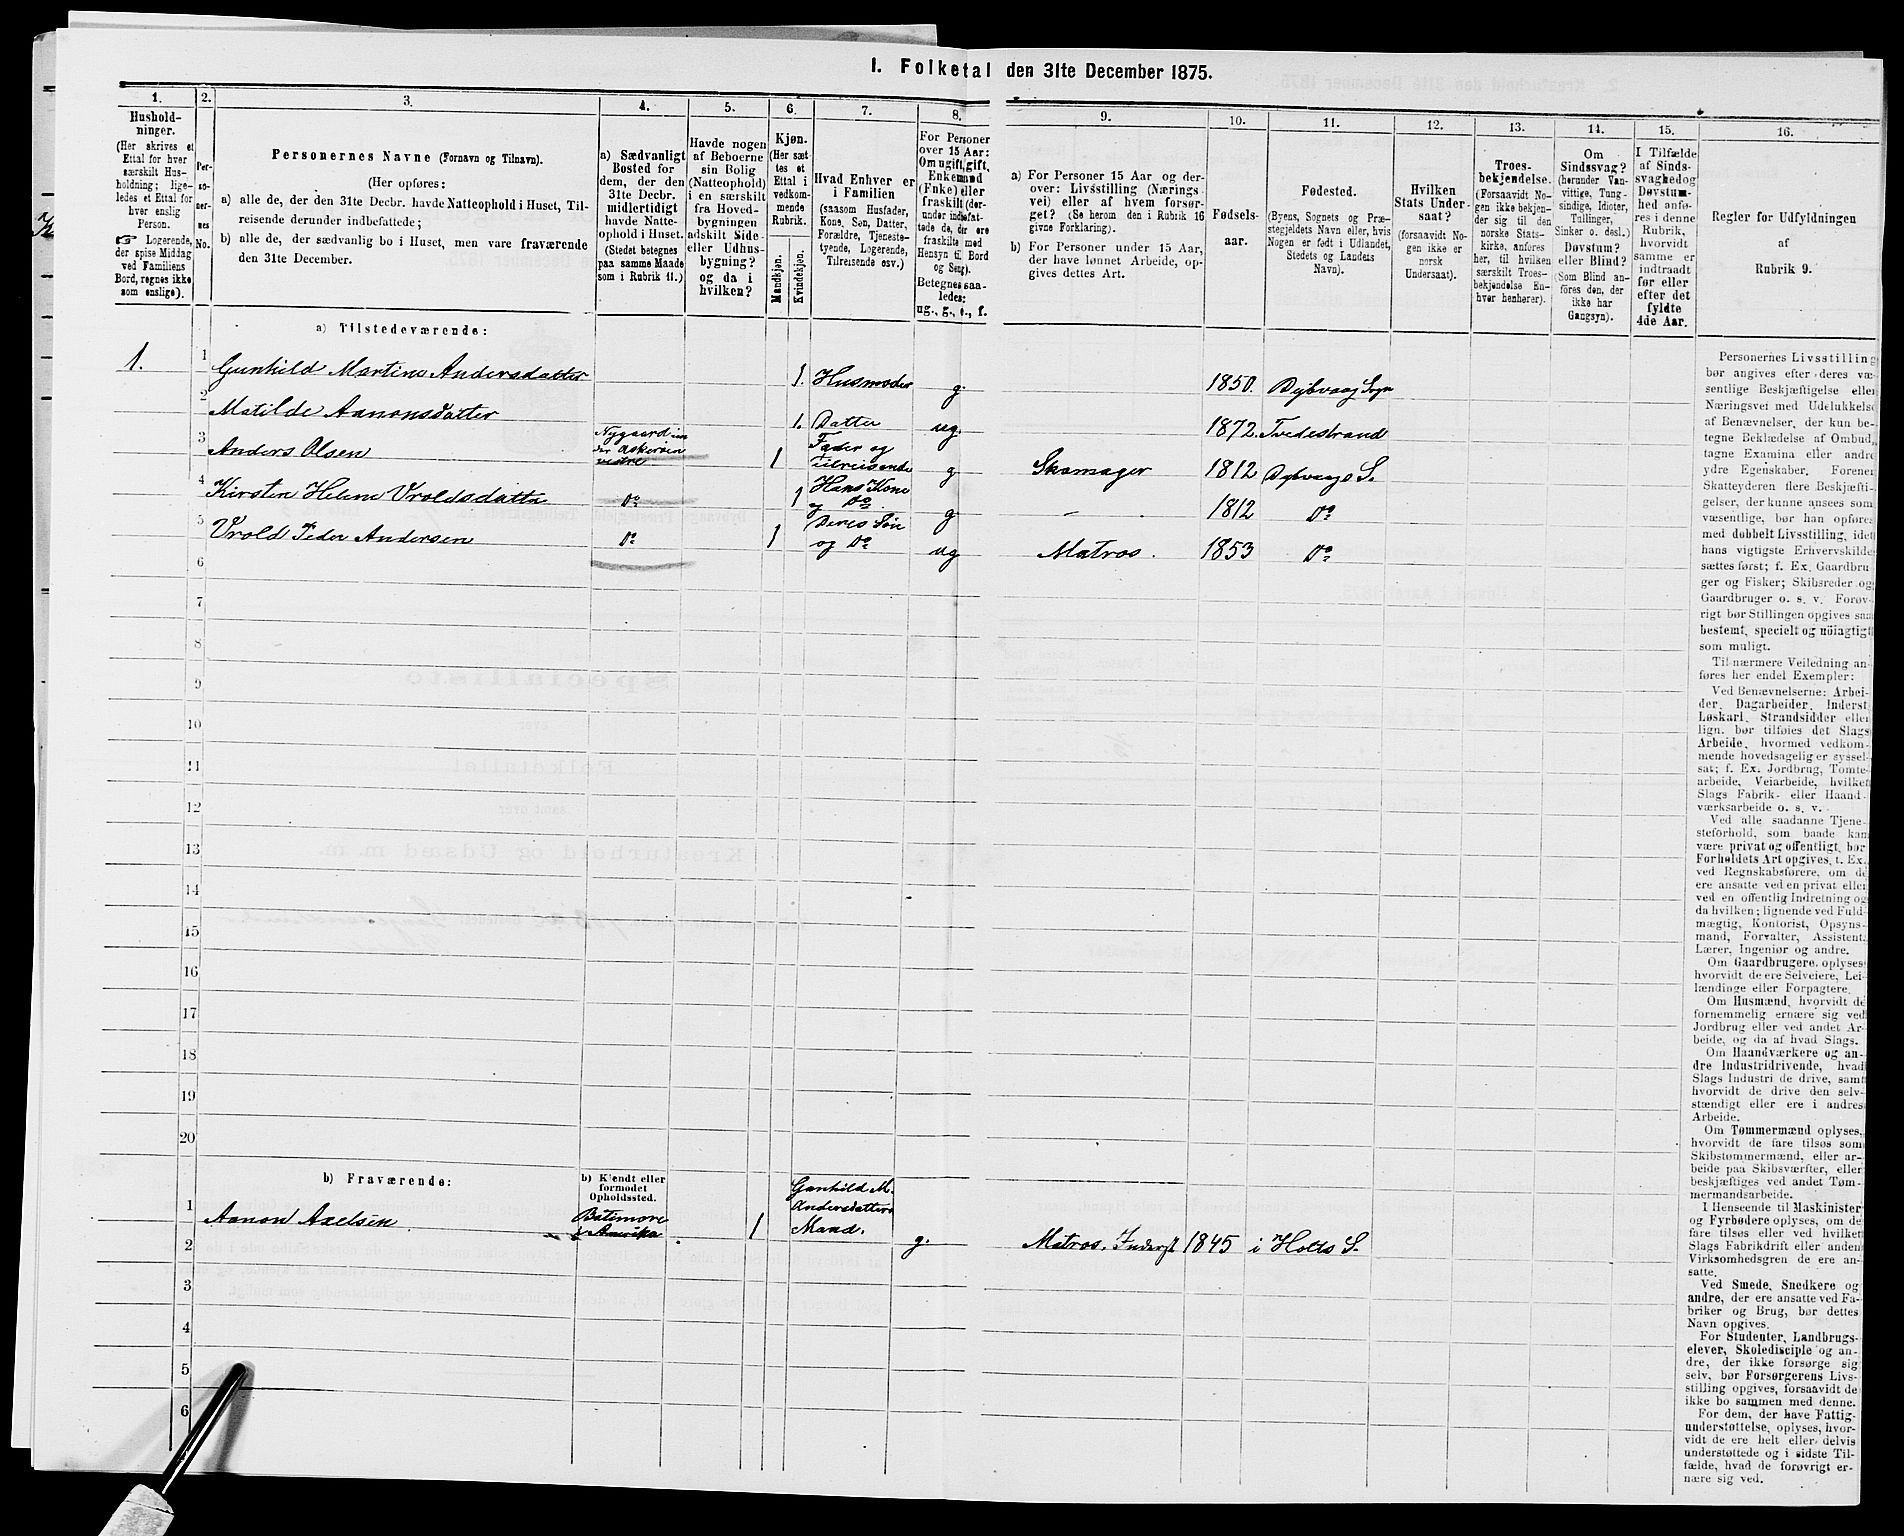 1. Folketal den 31te December 1875.
1.
Hushold-
ninger.
(Her skrives et
Ettal for hver
særskilt Hus-
holdning; lige-
ledes et Ettal for
hver enslig
Person.
☞ Logerende,
der spise Middag
ved Familiens
Bord, regnes ikke
som enslige).
2.
Per-
so-
ner-
nes
No.
3.
Personernes Navne (Fornavn og Tilnavn).
(Her opføres:
a) alle de, der den 31te Decbr. havde Natteophold i Huset, Til-
reisende derunder indbefattede;
b) alle de, der sædvanlig bo i Huset, men vare fraværende
den 31te December.
4.
a) Sædvanligt
Bosted for
dem, der den
31te Decbr.
midlertidigt
havde Natte-
ophold i Huset.
(Stedet betegnes
paa samme Maade
som i Rubrik 11.)
5.
Havde nogen
af Beboerne
sin Bolig
(Natteophold)
i en særskilt
fra Hoved-
bygningen
adskilt Side-
eller Udhus-
bygning?
og da i
hvilken?
6.
Kjøn.
(Her sæt-
tes et
Ettal i
vedkom-
mende
Rubrik.
Mandkjøn.
Kvindekjøn.
7.
Hvad Enhver er
i Familien
(saasom Husfader,
Kone, Søn, Datter,
Forældre, Tjeneste-
tyende, Logerende,
Tilreisende osv.)
8.
For Personer
over 15 Aar:
Om ugift, gift,
Enkemand
(Enke) eller
fraskilt (der-
under indbefat-
tede de, der ere
fraskilte med
Hensyn til Bord
og Seng).
Betegnes saa-
ledes:
ug., g., e., f.
9.
a) For Personer 15 Aar og der-
over: Livsstilling (Nærings-
vei) eller af hvem forsør-
get? (Se herom den i Rubrik 16
givne Forklaring).
b) For Personer under 15 Aar,
der have lønnet Arbeide, op-
gives dettes Art.
10.
Fødsels-
aar.
11.
Fødested.
(Byens, Sognets og Præ-
stegjeldets Navn eller, hvis
Nogen er født i Udlandet,
Stedets og Landets
Navn).
12.
Hvilken
Stats Under-
saat?
(forsaavidt No-
gen ikke er
norsk
Undersaat).
13.
Troes-
bekjendelse.
(Forsaavidt No-
gen ikke bekjen-
der sig til den
norske Stats-
kirke, anføres
her, til hvilken
særskilt Troes-
bekjendelse En-
hver henhører).
14.
Om
Sindssvag?
(herunder Van-
vittige, Tung-
sindige, Idioter,
Tullinger,
Sinker o. desl.)
Døvstum?
eller Blind?
(Som Blind an-
føres den, der
ikke har
Gangsyn).
15.
I Tilfælde
af Sinds-
svaghed og
Døvstum-
hed anfø-
res i denne
Rubrik,
hvorvidt
samme er
indtraadt
før eller
efter det
fyldte
4de Aar.
16.
Regler for Udfyldningen
af
Rubrik 9.
a) Tilstedeværende:
1. 1 Gunhild Martine Andersdatter 1. Husmoder g. 1850. Dybvaag Sogn
2 Matilde Aanonsdatter 1. Datter ug. 1872. Tvedestrand
3 Anders Olsen Nygaard un
der Askerøen
vestre 1 Fader og
Tilreisende g Skomager 1812 Dybvaags S.
4 Kirsten Helene Vroldsdatter do 1 Hans Kone
og do. g - 1812 do
5 Vrold Peder Andersen do 1 Deres Søn
og do ug Matros. 1853 do
6
7
8
9
10
11
12
13
14
15
16
17
18
19
20
b) Fraværende:
b) Kjendt eller
formodet
Opholdssted.
1 Aanon Axelsen Batimore
i Amerika 1 Gunhild M.
Andersdatters
Mand. g. Matros. 1845 i Holts S.
2
3
4
5
6
Personernes Livsstilling
bør angives efter deres væ-
sentlige Beskjæftigelse eller
Næringsvei med Udelukkelse
af Benævnelser, der kun be-
tegne Beklædelse af Ombud,
tagne Examina eller andre
ydre Egenskaber. Forener
Skatteyderen flere Beskjæfti-
gelser, der kunne ansees som
væsentlige, bør han opføres
med dobbelt Livsstilling, idet
hans vigtigste Erhvervskilde
sættes først; f. Ex. Gaardbru-
ger og Fisker; Skibsreder og
Gaardbruger o. s. v. Forøv-
rigt bør Stillingen opgives saa
bestemt, specielt og nöiagtigt
som muligt.
Til nærmere Veiledning an-
føres her endel Exempler:
Ved Benævnelserne: Arbei-
der, Dagarbeider, Inderst,
Løskarl, Strandsidder eller
lign. bør tilføies det Slags
Arbeide, hvormed vedkom-
mende hovedsagelig er syssel-
sat; f. Ex. Jordbrug, Tomte-
arbeide, Veiarbeide, hvilket
Slags Fabrik- eller Haand-
værksarbeide o. s. v.
Ved alle saadanne Tjene-
steforhold, som baade kan
være privat og offentligt, bør
Forholdets Art opgives, t. Ex.
ved Regnskabsførere, om de
ere ansatte ved en privat eller
ved en offentlig Indretning og
da hvilken; lignende ved Fuld-
mægtig, Kontorist, Opsyns-
mand, Forvalter, Assistent,
Lærer, Ingeniør og andre.
Om Gaardbrugere, oplyses,
hvorvidt de ere Selveiere, Lei-
lændinge eller Forpagtere.
Om Husmænd, hvorvidt de
fornemmelig ernære sig ved
Jordbrug eller ved andet Ar-
beide, og da af hvad Slags.
Om Haandværkere og an-
dre Industridrivende, hvad
Slags Industri de drive, samt
hvorvidt de drive den selv-
stændigt eller ere i andres
Arbeide.
Om Tømmermænd oplyses,
hvorvidt de fare tilsøs som
Skibstømmermænd, eller ar-
beide paa Skibsværfter, eller
beskjæftiges ved andet Tøm-
mermandsarbeide.
I Henseende til Maskinister
og Fyrbødere oplyses, om de
fare tilsøs eller ved hvilket
Slags Fabrikdrift eller anden
Virksomhedsgren de ere an-
satte.
Ved Smede, Snedkere og
andre, der ere ansatte ved Fa-
briker og Brug, bør dettes
Navn opgives.
For Studenter, Landbrugs-
elever, Skoledisciple og an-
dre, der ikke forsørge sig
selv, bør Forsørgerens Livs-
stilling opgives, forsaavidt de
ikke bo sammen med denne.
For dem, der have Fattig-
understøttelse, oplyses, hvor-
vidt de ere helt eller delvis
understøttede og i sidste Til-
fælde, hvad de forøvrigt er-
nære sig ved.